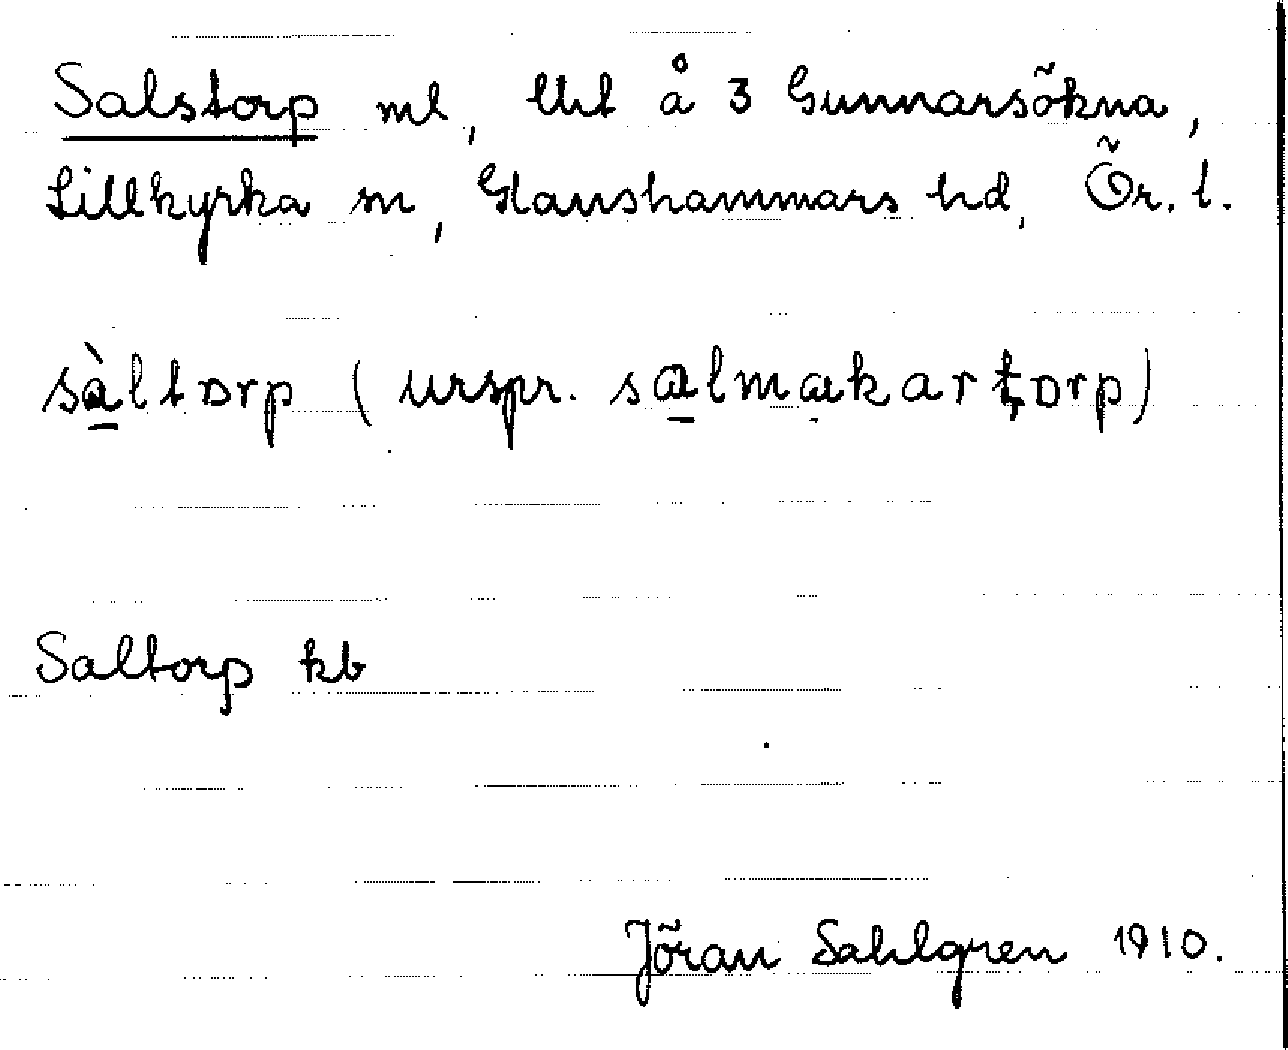 Salstorp ml, tht å 3 Gunnarsökna,
Lillkyrka sn, Glanshammars hd, Ör. l.
sàltorp (urspr. salmakartorp)
Saltorp kb
Jöran Sahlgren 1910.